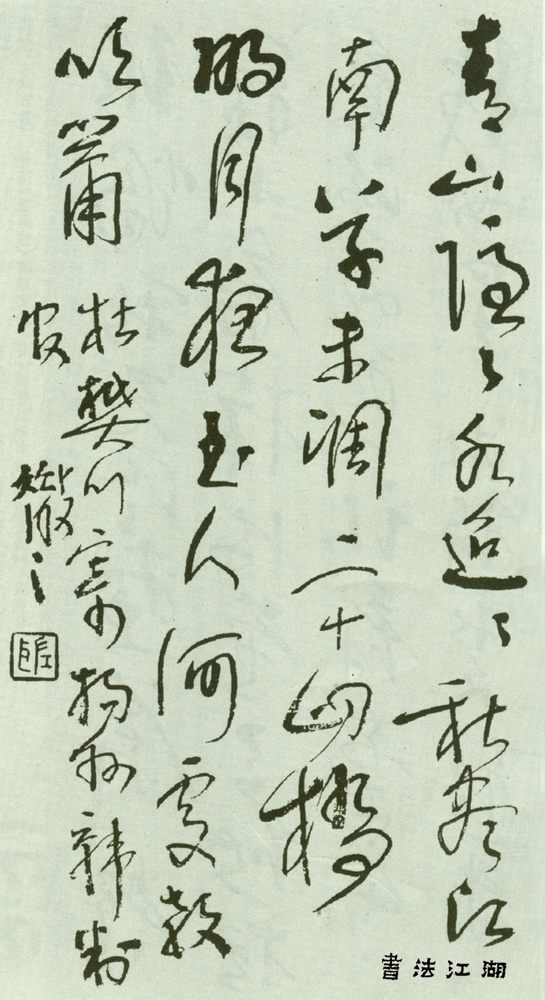 青山隱々水迢々秋盡江
南草未凋二十四橋
明月夜玉人何處教
吹簫 杜樊川寄揚州韓判
官 散之
書法江湖